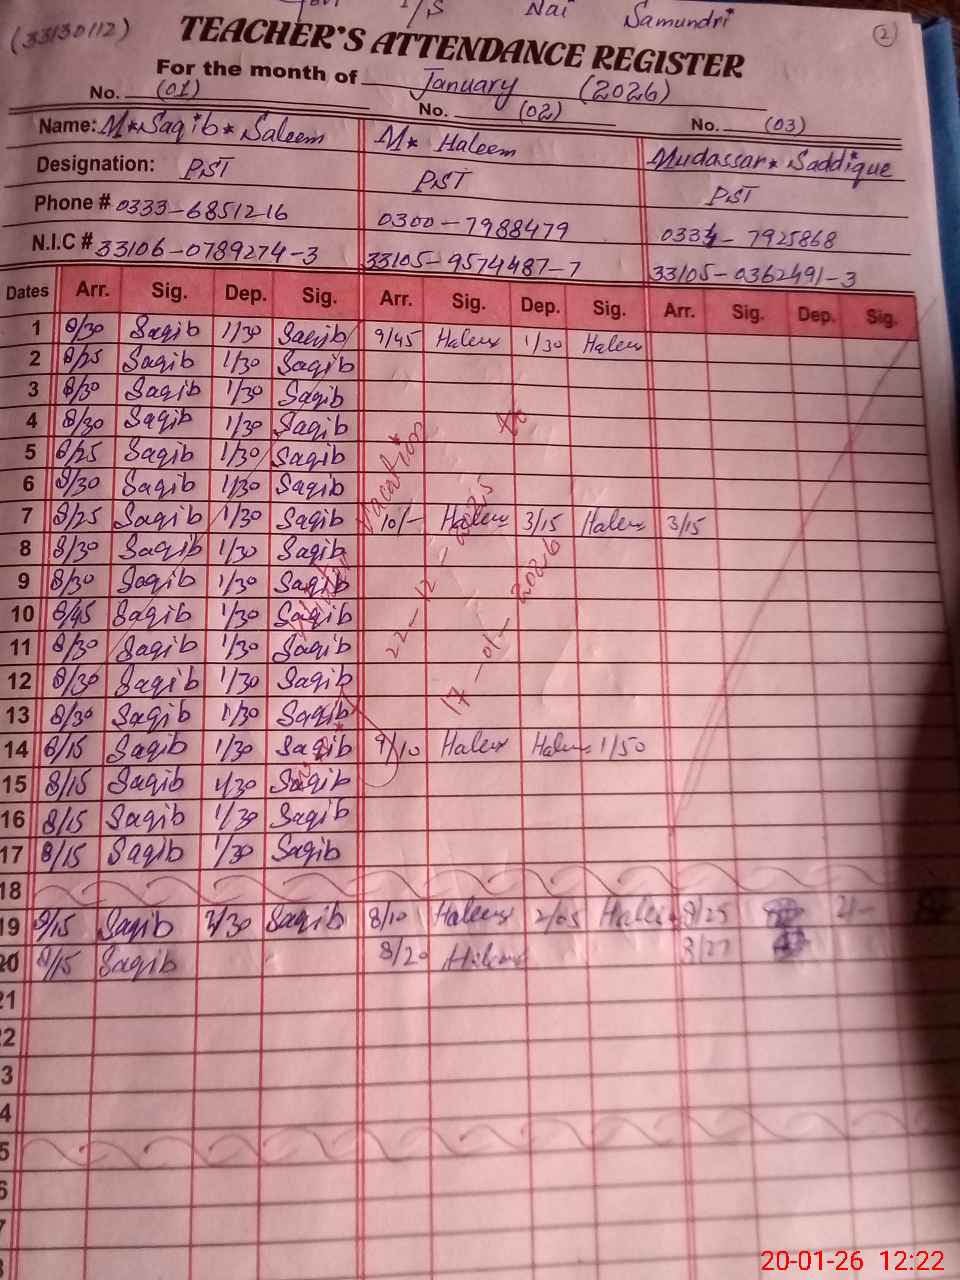 I/S Nai Samundri
(33130112) TEACHER'S ATTENDANCE REGISTER (2)
For the month of January (2026)
No. (01) No. (02) No. (03)
Name: M* Saqib* Saleem M* Haleem Mudassar* Saddique
Designation: PST PST PST
Phone # 0333-6851216 0300-7988479 0334-7925868
N.I.C # 33106-0789274-3 33105-9574487-7 33105-0362491-3
Dates Arr. Sig. Dep. Sig. Arr. Sig. Dep. Sig. Arr. Sig. Dep. Sig.
1 8/30 Saqib 1/30 Saqib 9/45 Haleem 1/30 Haleem
2 8/25 Saqib 1/30 Saqib
3 8/30 Saqib 1/30 Saqib
4 8/30 Saqib 1/30 Saqib
5 8/25 Saqib 1/30 Saqib
6 8/30 Saqib 1/30 Saqib
7 8/25 Saqib 1/30 Saqib 10/- Haleem 3/15 Haleem 3/15
8 8/30 Saqib 1/30 Saqib
9 8/30 Saqib 1/30 Saqib
10 8/45 Saqib 1/30 Saqib
11 8/30 Saqib 1/30 Saqib
12 8/30 Saqib 1/30 Saqib
13 8/30 Saqib 1/30 Saqib
14 8/15 Saqib 1/30 Saqib 9/10 Haleem Haleem 1/50
15 8/15 Saqib 1/30 Saqib
16 8/15 Saqib 1/30 Saqib
17 8/15 Saqib 1/30 Saqib
18
19 8/15 Saqib 2/30 Saqib 8/10 Haleem 2/05 Haleem 8/25 2/-
20 8/15 Saqib 8/20 Haleem 8/27
21
22
3
4
5
6
7
Vacation
22-12-2025 to
17-01-2026
20-01-26 12:22